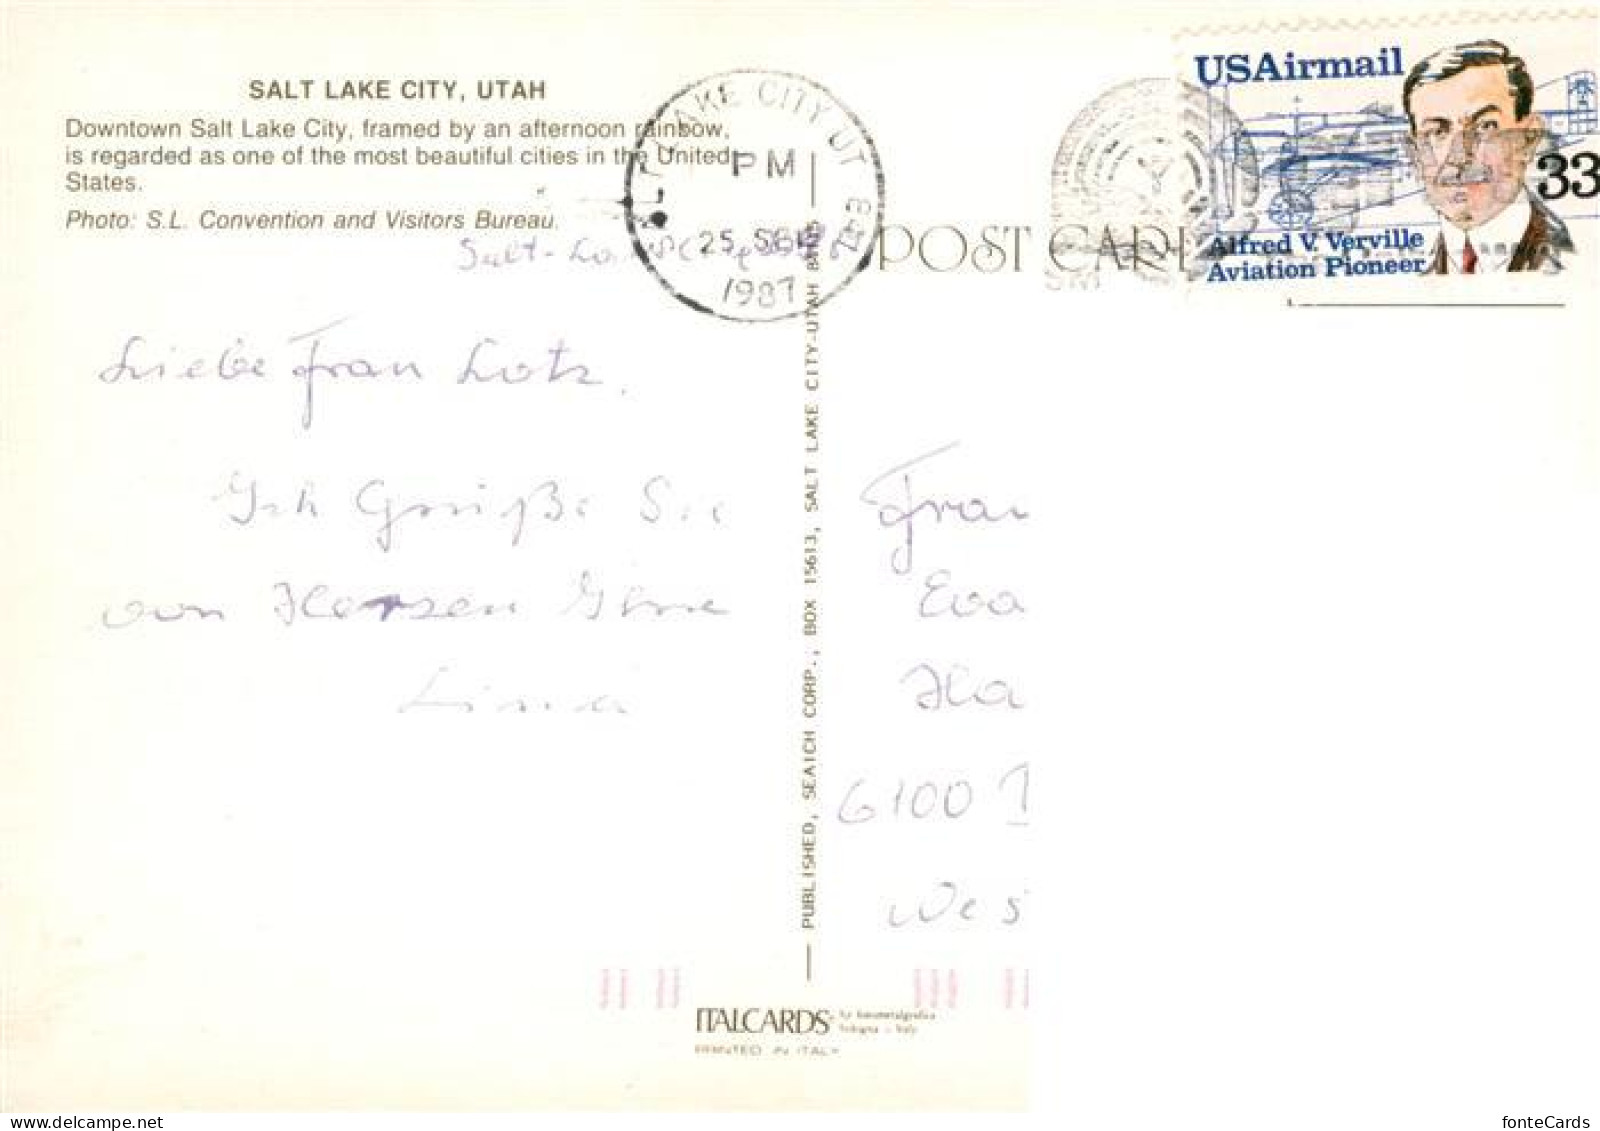 SALT LAKE CITY, UTAH
Downtown Salt Lake City, framed by an afternoon rainbow,
is regarded as one of the most beautiful cities in the United
States.
Photo: S.L. Convention and Visitors Bureau.
SALT LAKE CITY UT 841
PM
25 SEP
1987
USAirmail
33
Alfred V. Verville
Aviation Pioneer
POST CARD
Salt-La
Liebe Frau Lotz.
Ich Grüße Sie
von Herzen Ihre
PUBLISHED, SEAICH CORP., BOX 15613, SALT LAKE CITY-UTAH
Frau
Eva
Ha
6100
Wes
ITALCARDS
PRINTED IN ITALY
fonteCards